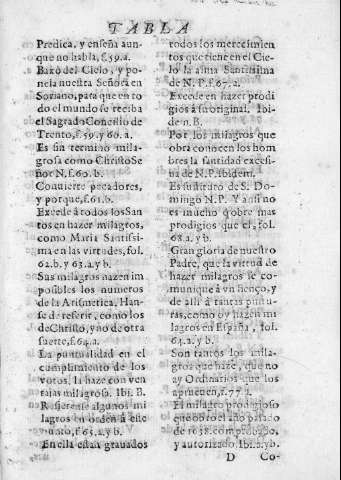 TABLA
Predica, y enseña aun-
que no habla, f.59.a.
Baxò del Cielo, y po-
nela nuestra Señora en
Soriano, para que en to
do el mundo se reciba
el Sagrado Concilio de
Trento, f.59. y 60.a.
Es sin termino mila-
grosa como Christo Se
ñor N. f.60.b.
Convierte pecadores,
y porque, f.61.b.
Excede à todos los San
tos en hazer milagros,
como Maria Santissi-
ma en las virtudes, fol.
62.b. y 63.a. y b.
Sus milagros hazen im
posibles los numeros
de la Arismetica, Han-
se de referir, como los
de Christo, y no de otra
suerte, f.64.a.
La puntualidad en el
cumplimiento de los
votos, la haze con ven
tajas milagrosa. Ibi. B.
Refierense algunos mi
lagros en orden à este
punto, f.65.a. y b.
En ella estan gravados
todos los merecimien
tos que tiene en el Cie-
lo la alma Santissima
de N. P. f.67.a.
Excede en hazer prodi
gios à su original. Ibi-
de n.B.
Por los milagros que
obra conocen los hom
bres la santidad excesi-
va de N. P. ibidem.
Es sustituto de S. Do-
mingo N. P. Y assi no
es mucho q̃ obre mas
prodigios que el, fol.
68.a. y b.
Gran gloria de nuestro
Padre, que la virtud de
hazer milagros se co-
munique à vn lienço, y
de alli à tantas puntu-
ras, como oy hazen mi
lagros en España, fol.
63.a. y b.
Son tantos los mila-
gros que haze, que no
ay Ordinarios que los
aprueuen, f.77.a.
El milagro prodigioso
que obrò el año pasado
de 1638. comprobado,
y autorizado. Ibi.a. y b.
D Co-